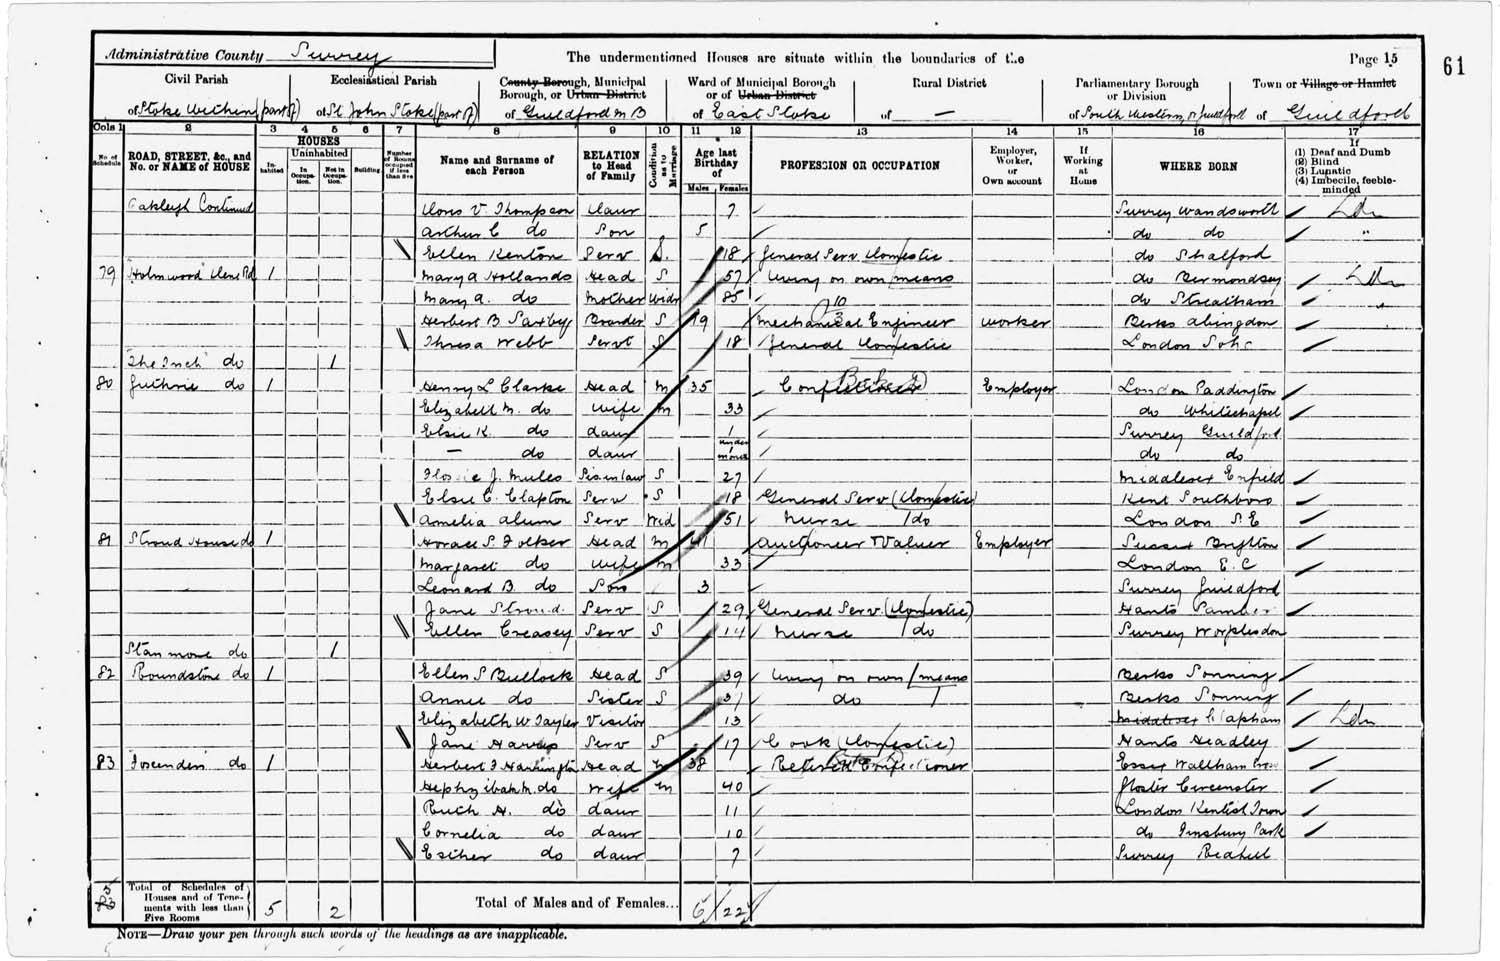 Administrative County Surrey
The undermentioned Houses are situate within the boundaries of the
Page 15
61
Civil Parish
of Stoke Within (part of)
Ecclesiastical Parish
of St. John Stoke (part of)
County Borough, Municipal Borough, or Urban District
of Guildford M B
Ward of Municipal Borough or of Urban District
of East Stoke
Rural District
of —
Parliamentary Borough or Division
of South Western, or Guildford
Town or Village or Hamlet
of Guildford
Cols 1 2 3 4 5 6 7 8 9 10 11 12 13 14 15 16 17
No. of Schedule
ROAD, STREET, &c., and No. or NAME of HOUSE
HOUSES
Inhabited
Uninhabited
In Occupation.
Not in Occupation.
Building.
Number of Rooms occupied if less than five
Name and Surname of each Person
RELATION to Head of Family
Condition as to Marriage
Age last Birthday of
Males Females
PROFESSION OR OCCUPATION
Employer, Worker, or Own account
If Working at Home
WHERE BORN
If
(1) Deaf and Dumb
(2) Blind
(3) Lunatic
(4) Imbecile, feeble-minded
Oakleigh Continued Doris V. Thompson Daur 7 Surrey Wandsworth Ldn
Arthur C do Son 5 do do "
Ellen Kenton Serv S. 18 General Serv Domestic do Shalford
79 "Holmwood" Dene Rd 1 Mary A Hollands Head S 57 Living on own means do Bermondsey Ldn
Mary A. do Mother Widr 85 do Streatham "
10
3
Herbert B Saxby Boarder S 19 Mechanical Engineer Worker Berks Abingdon
Thresa Webb Servt S 18 General Domestic London Soho
"The Inch" do 1
80 Guthrie do 1 Henry L Clarke Head M 35 Confectioner Employer London Paddington
Elizabeth M. do Wife M 33 do Whitechapel
Elsie K. do daur 1 Surrey Guildford
— do daur under month do do
Flossie J. Mules Sis in law S 27 Middlesex Enfield
Elsie E. Clapton Serv S 18 General Serv (Domestic) Kent Southboro
Amelia Alum Serv Wid 51 Nurse do London S.E
81 Stroud House do 1 Horace S. Folker Head M 41 Auctioneer Valuer Employer Sussex Brighton
Margaret do Wife M 33 London E. C
Leonard B. do Son 3 Surrey Guildford
Jane Stroud. Serv S 29 General Serv. (Domestic) Hants Pamber
Ellen Creasey Serv S 14 Nurse do Surrey Worplesdon
Stanmore do 1
82 Roundstone do 1 Ellen S Bullock Head S 39 Living on own means Berks Sonning
Annie do Sister S 31 do Berks Sonning
Elizabeth W Tayler Visitor 13 Middlesex Clapham Ldn
Jane Harris Serv S 17 Cook (Domestic) Hants Headley
83 do 1 Herbert F Harrington Head M 38 Retired Confectioner Essex Waltham Cross
Hephzibah M. do Wife M 40 Gloster Cirencester
Ruth H. do daur 11 London Kentish Town
Cornelia do daur 10 do Finsbury Park
Esther do daur 7 Surrey Redhill
5
83
Total of Schedules of Houses and of Tenements with less than Five Rooms 5 2
Total of Males and of Females... 6 22
NOTE—Draw your pen through such words of the headings as are inapplicable.